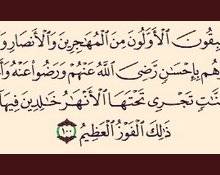 ـبِقُونَ ٱلْأَوَّلُونَ مِنَ ٱلْمُهَـٰجِرِينَ وَٱلْأَنصَارِ وَ
هُم بِإِحْسَـٰنٍ رَّضِىَ ٱللَّهُ عَنْهُمْ وَرَضُوا۟ عَنْهُ وَأَ
ـنَّـٰتٍ تَجْرِى تَحْتَهَا ٱلْأَنْهَـٰرُ خَـٰلِدِينَ فِيهَا
ذَٰلِكَ ٱلْفَوْزُ ٱلْعَظِيمُ ١٠٠